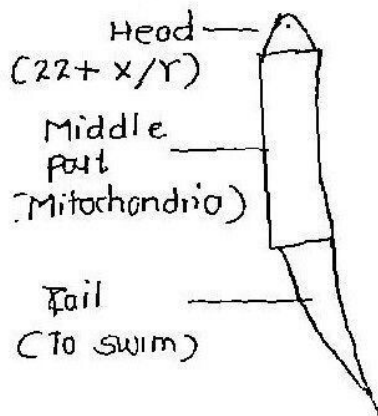 Head
(22+ X/Y)
Middle
part
(Mitochondria)
Tail
(To swim)